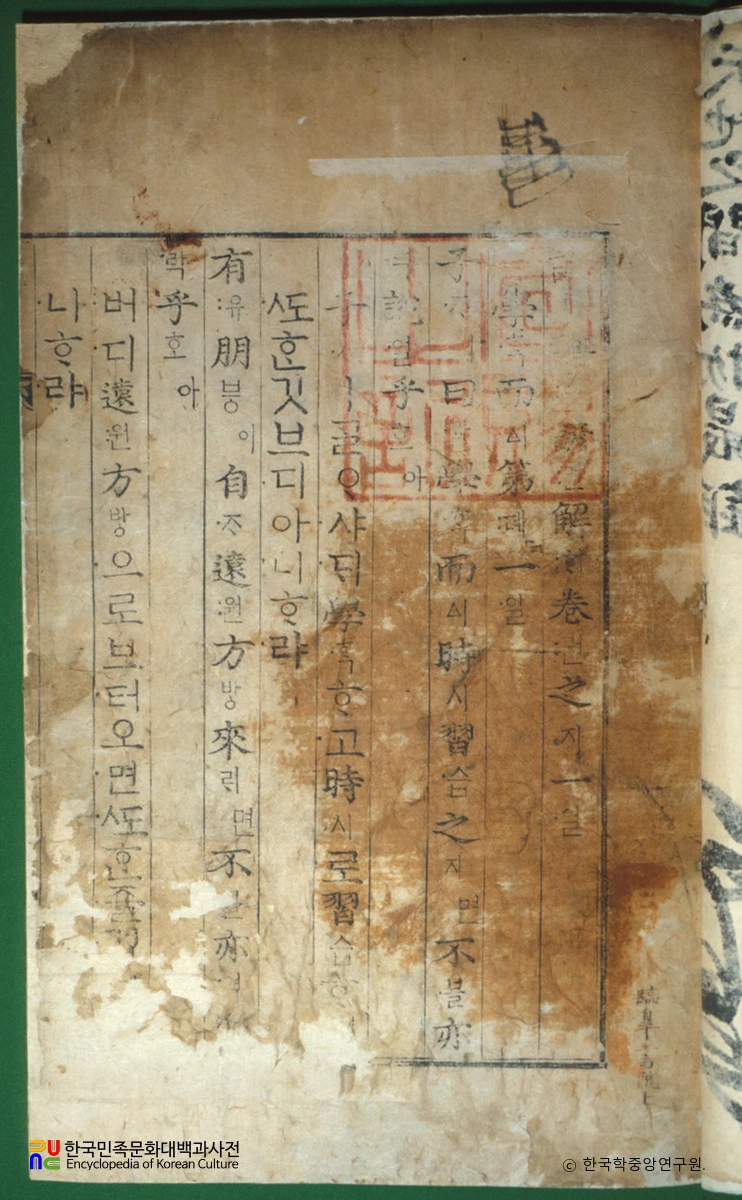 解ᄒᆡ卷권之지一일
學ᄒᆞᆨ而ᅀᅵ第뎨一일
子ᄌᆞㅣ曰왈學ᄒᆞᆨ而ᅀᅵ時시習습之지면不블亦
역說열乎호아
子ᄌᆞㅣᄀᆞᆯᄋᆞ샤ᄃᆡ學ᄒᆞᆨᄒᆞ고時시로習습ᄒᆞ
ᄯᅩᄒᆞᆫ깃브디아니ᄒᆞ랴
有유朋븡이自ᄌᆞ遠원方방來ᄅᆡ면不블亦역
락乎호아
버디遠원方방으로브터오면ᄯᅩᄒᆞᆫ즐
니ᄒᆞ랴
한국민족문화대백과사전
Encyclopedia of Korean Culture
© 한국학중앙연구원.